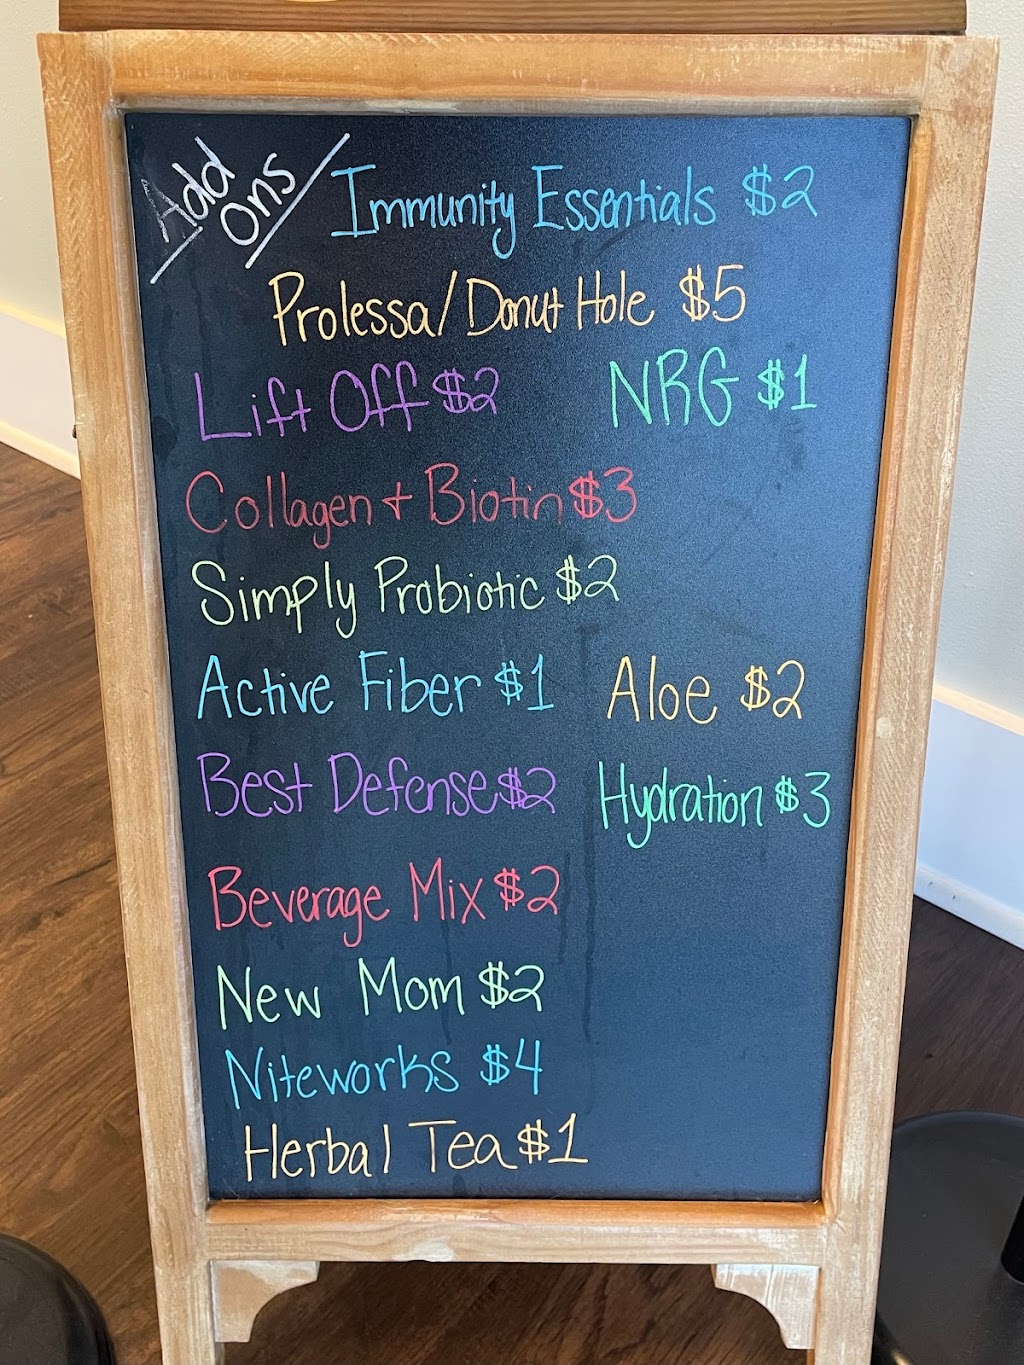 Add Ons
Immunity Essentials $2
Prolessa/Donut Hole $5
Lift Off $2 NRG $1
Collagen + Biotin $3
Simply Probiotic $2
Active Fiber $1 Aloe $2
Best Defense $2 Hydration $3
Beverage Mix $2
New Mom $2
Niteworks $4
Herbal Tea $1